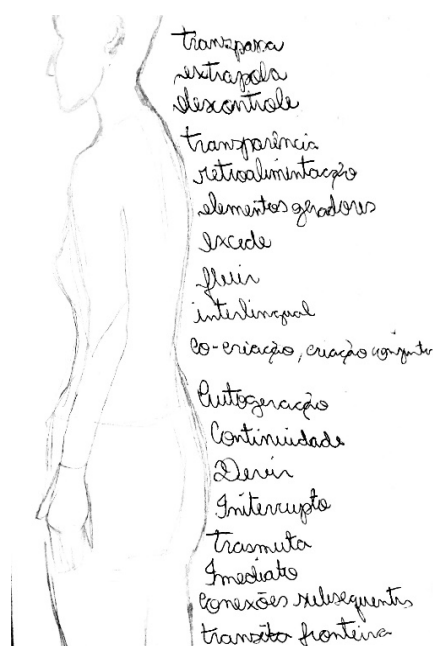 transpassa
extrapola
descontrole
transparência
retroalimentação
elementos geradores
excede
fluir
interlingual
co-criação, criação conjunta
Autogeração
Continuidade
Devir
Initerrupto
trasmuta
Imediato
conexões subsequentes
transita fronteira